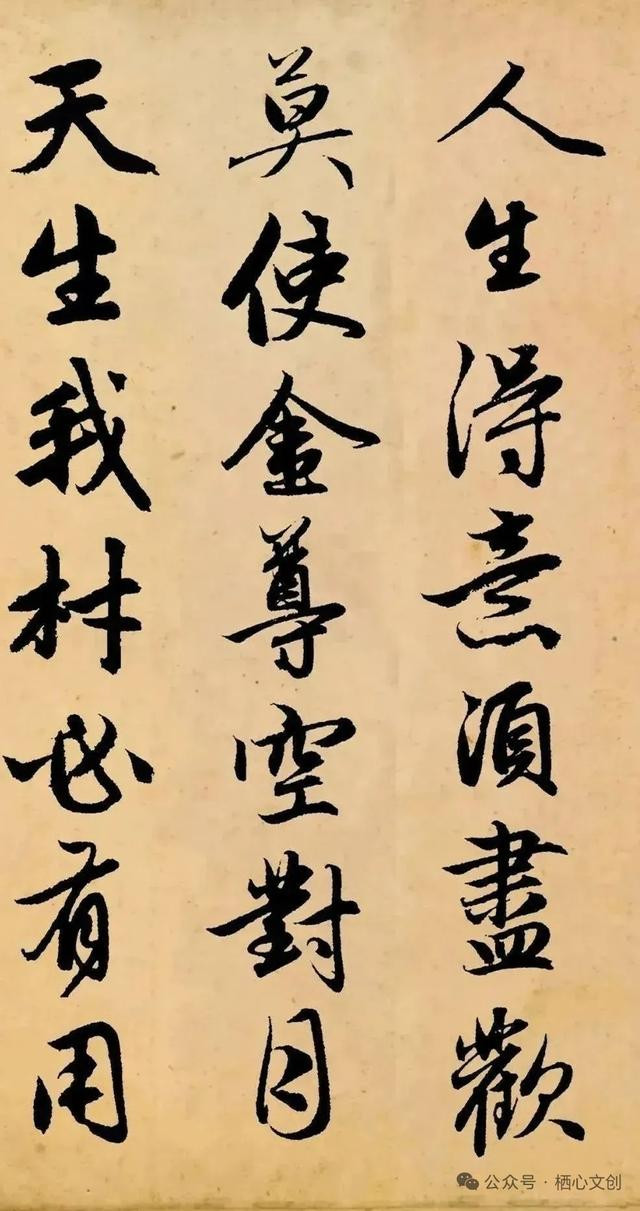 人生得意須盡歡
莫使金尊空對月
天生我材必有用
公众号·栖心文创